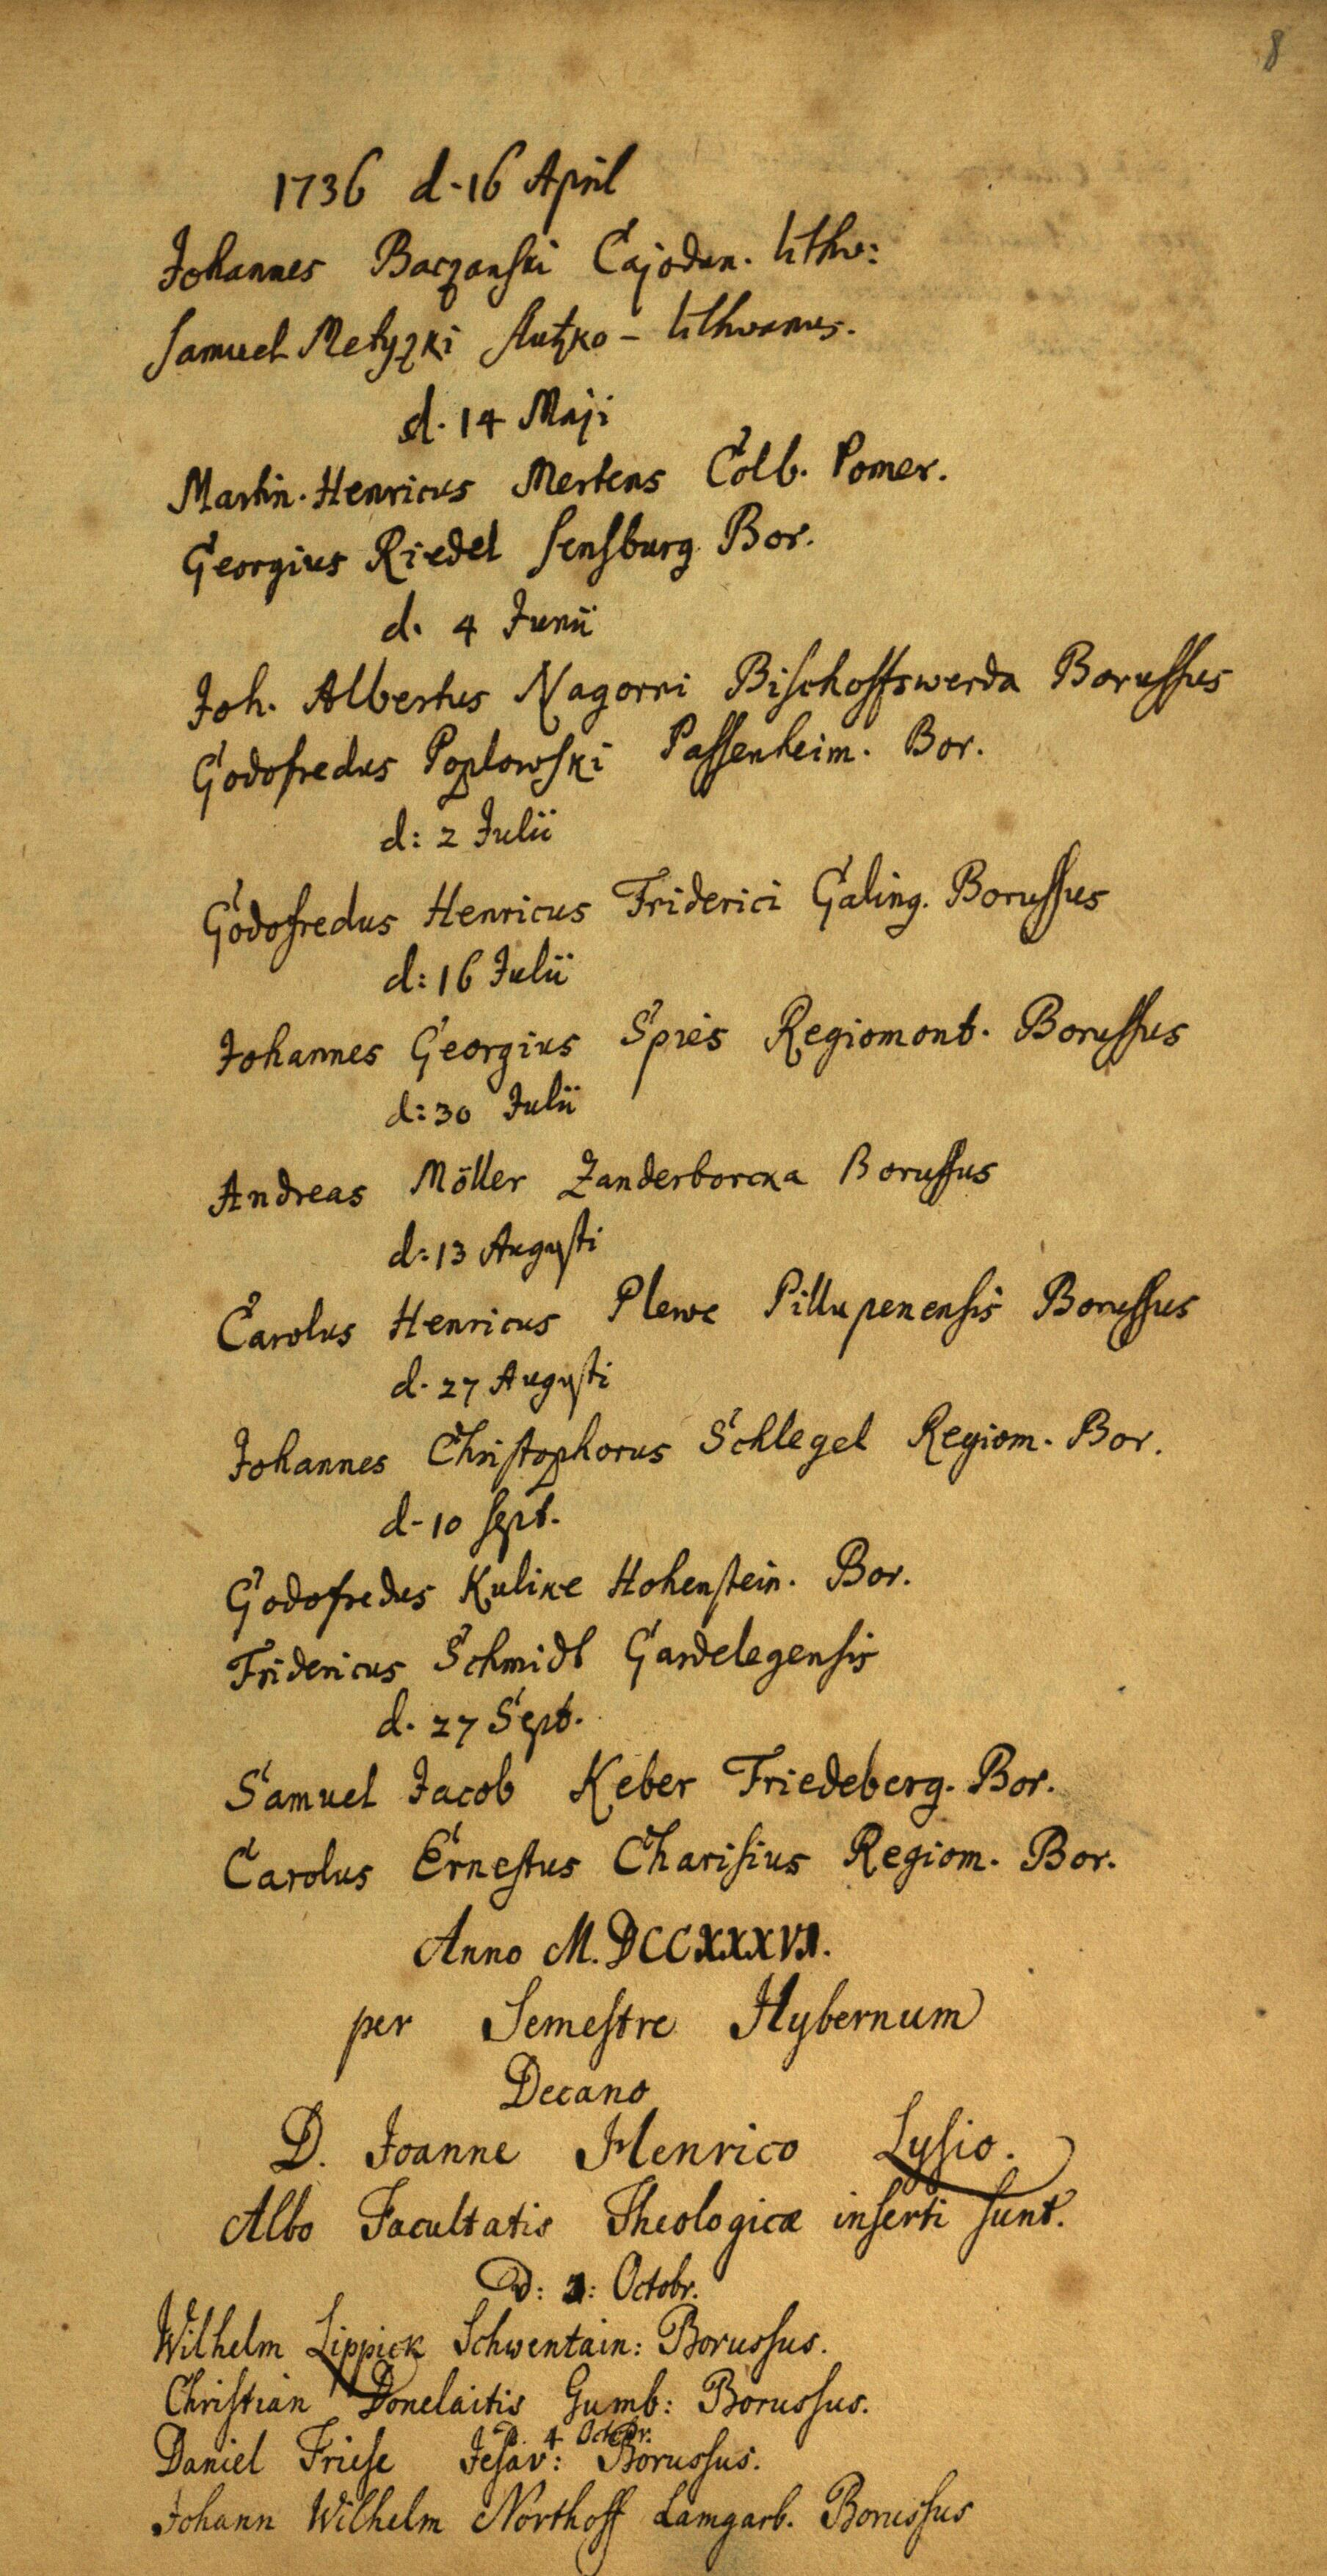 8
1736 d. 16 April
Johannes Baczanski Cajodun. lithv:
Samuel Metyzki Slutzko - lithvanus.
d. 14 Maji
Martin. Henricus Mertens Colb. Pomer.
Georgius Riedel Sensburg. Bor.
d. 4 Junii
Joh. Albertus Nagorni Bischoffswerda Borussus
Godofredus Poplowski Passenheim. Bor.
d: 2 Julii
Godofredus Henricus Friderici Galing. Borussus
d: 16 Julii
Johannes Georgius Spies Regiomont. Borussus
d: 30 Julii
Andreas Möller Zanderborcka Borussus
d: 13 Augusti
Carolus Henricus Plewe Pillupenensis Borussus
d. 27 Augusti
Johannes Christophorus Schlegel Regiom. Bor.
d. 10 Sept.
Godofredus Kulike Hohenstein. Bor.
Fridericus Schmidt Gardelegensis
d. 27 Sept.
Samuel Jacob Keber Friedeberg. Bor.
Carolus Ernestus Charisius Regiom. Bor.
Anno M.DCCXXXVI.
per Semestre Hybernum
Decano
D. Joanne Henrico Lysio.
Albo Facultatis Theologicæ inserti sunt.
D: Octobr.
Wilhelm Lippick Schwentain: Borussus.
Christian Donelaitis Gumb: Borussus.
D. 4 Octobr.
Daniel Friese Jesav: Borussus.
Johann Wilhelm Northoff Lamgarb. Borussus